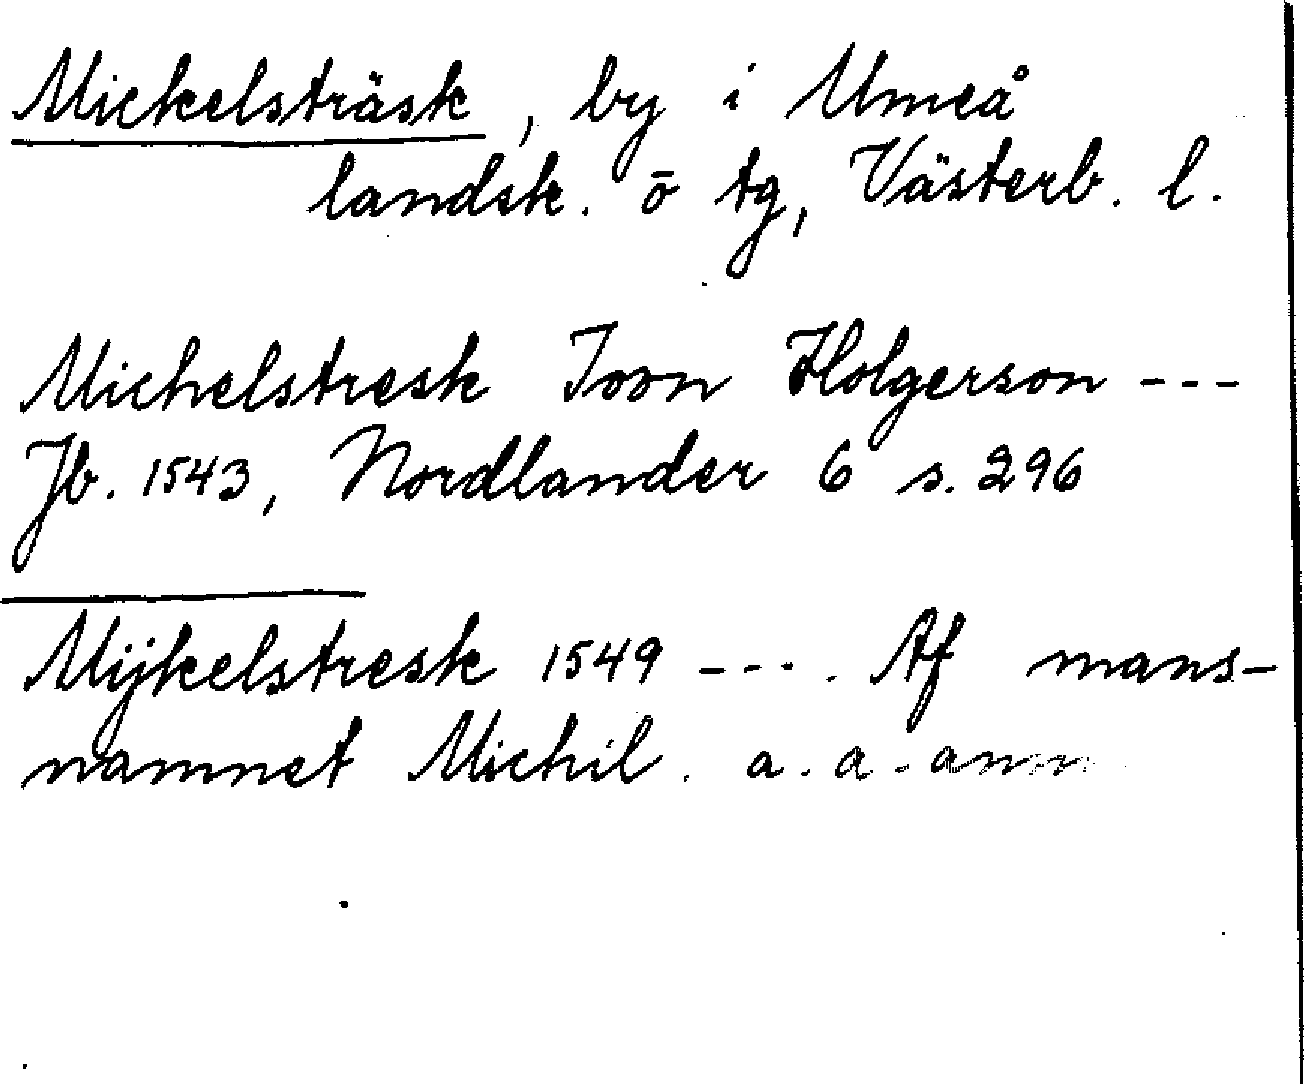 Mickelsträsk, by i Umeå
landsk. ö tg, Västerb. l.
Michelstresk Ioon Holgerson ---
Jb. 1543, Nordlander 6 s. 296
Mijkelstresk 1549 ---. Af mans-
namnet Michil. a. a. anm